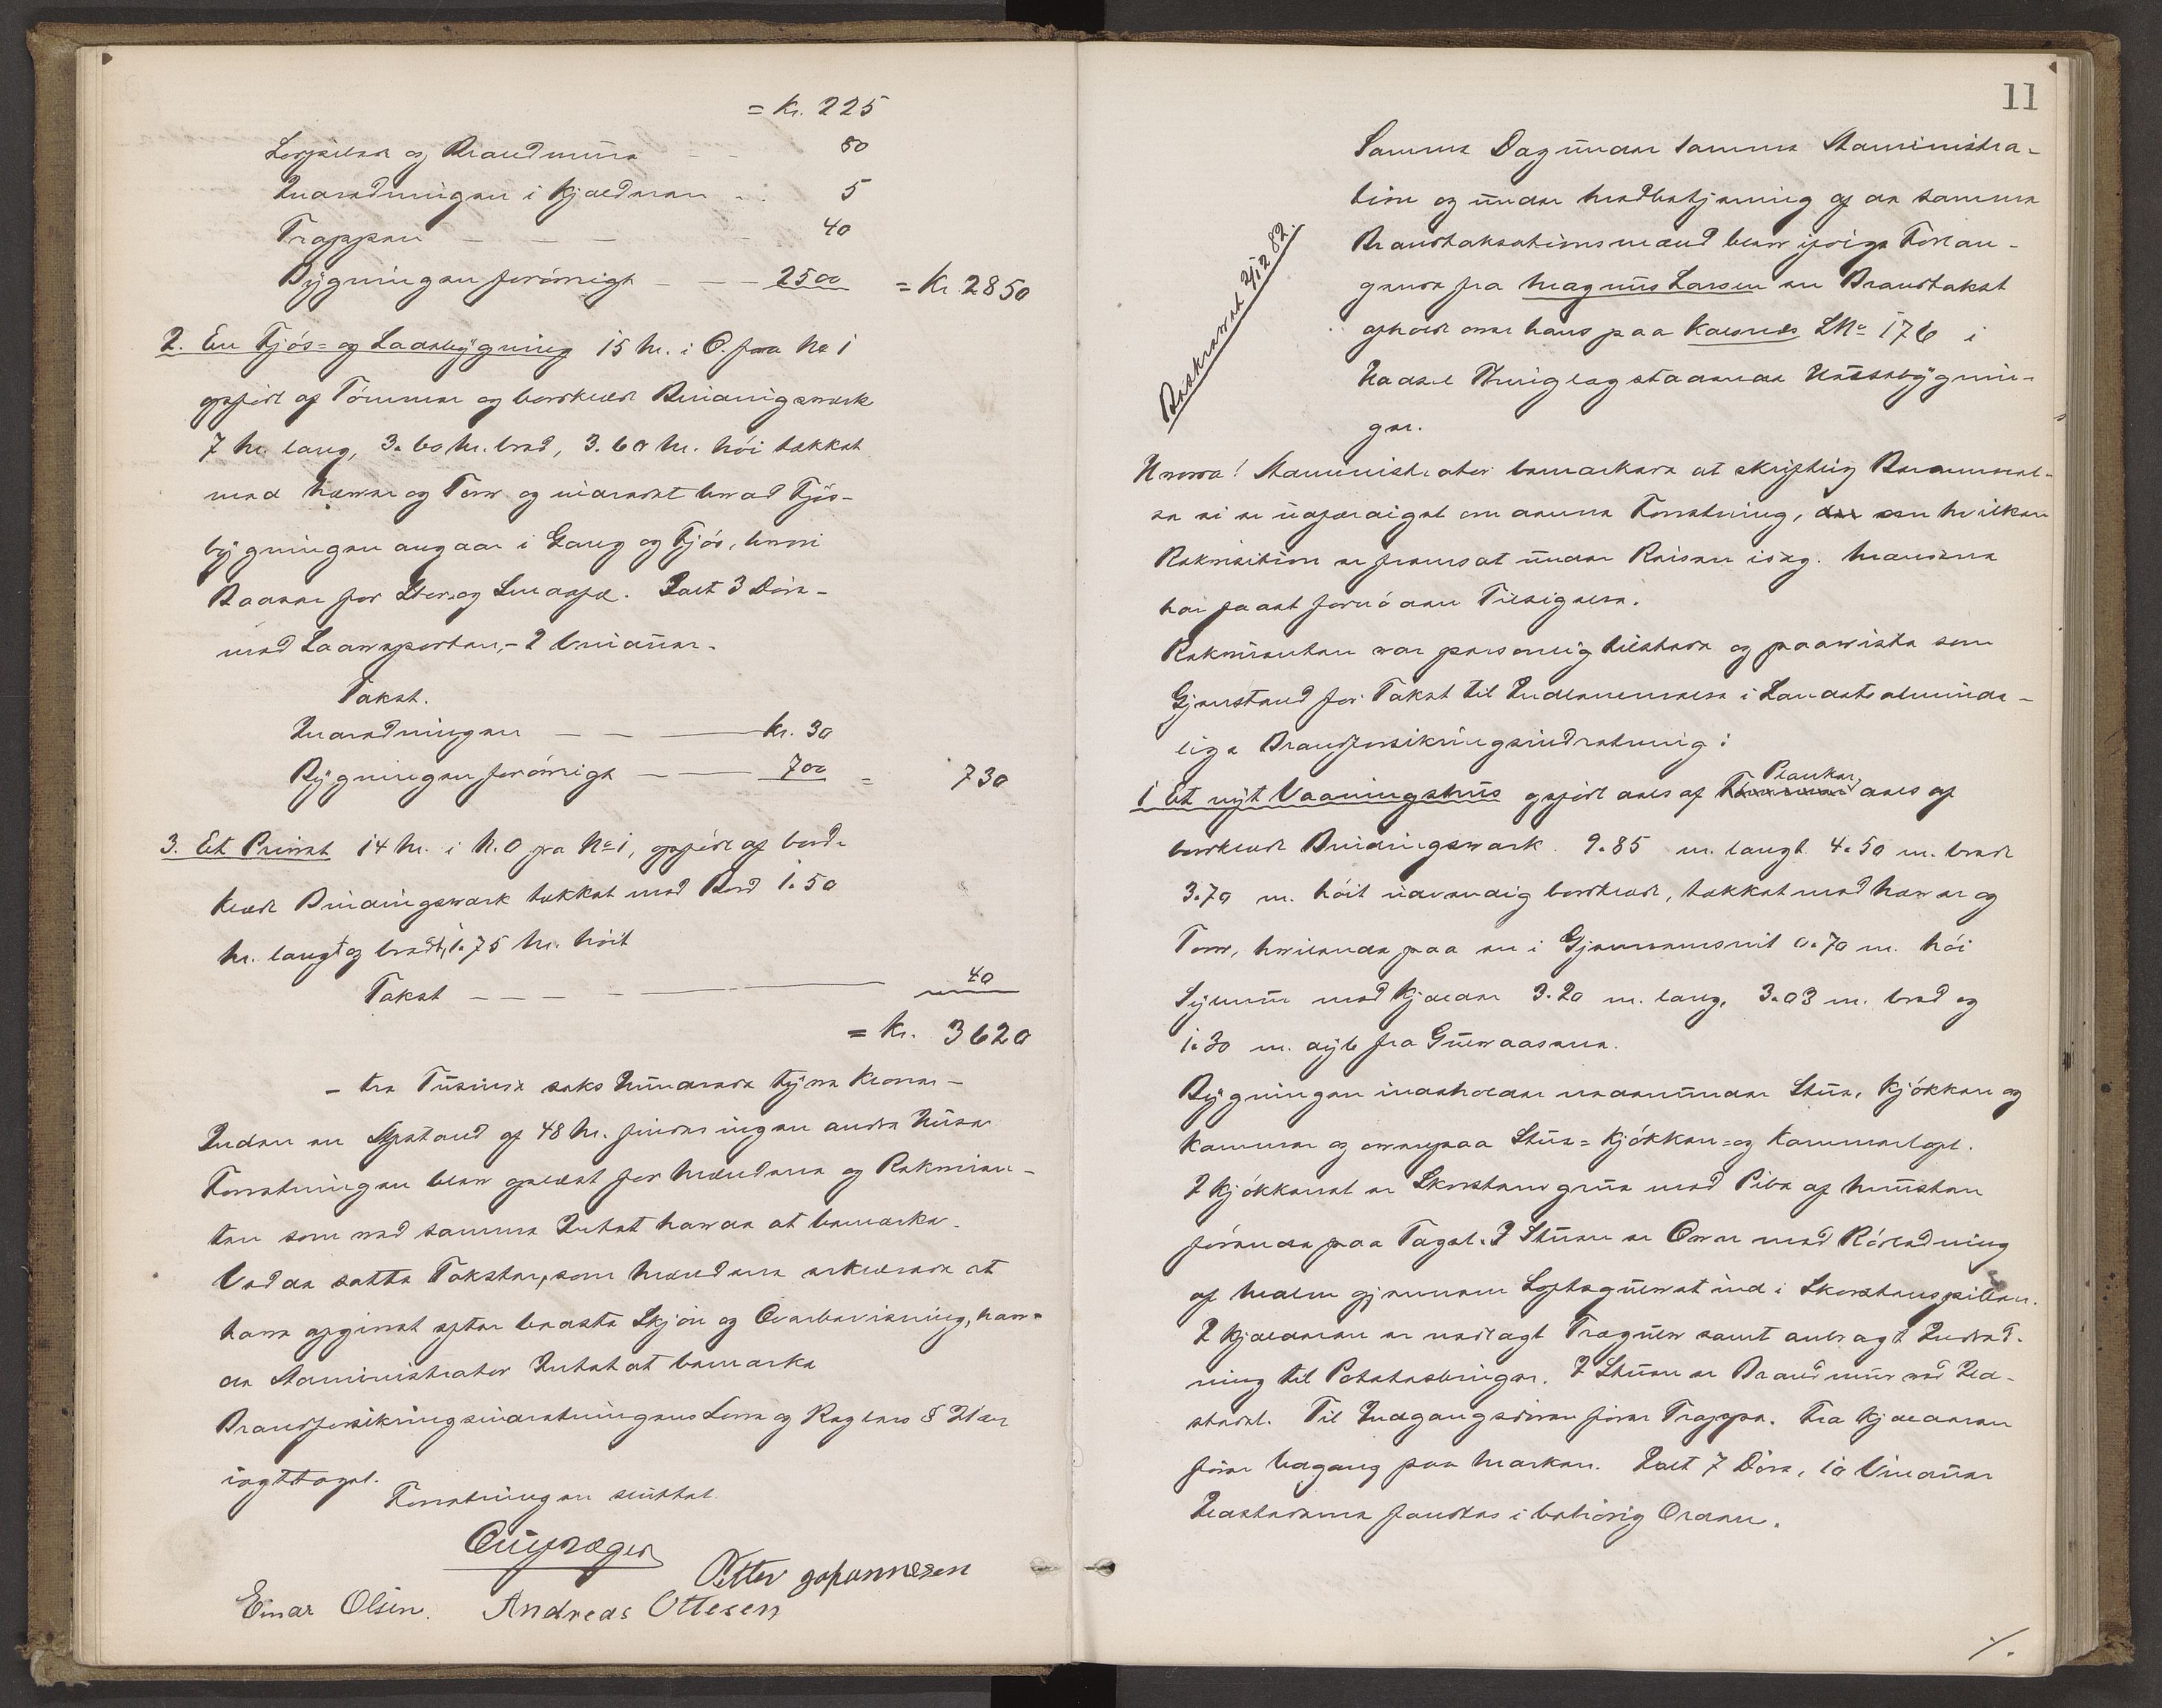 = Kr. 225
Lergulve og Brandmure - - 80
Indredningen i Kjælderen - .. 5
Trappen - - - - 40
Bygningen forøvrigt - - - 2500 = Kr. 2850
2. En Fjös= og Ladebygning 15 M. i O. fra No 1
opført af Tömmer og bordklædt Bindingsværk
7 M. lang, 3.60 M. bred, 3.60 M. höi tækket
med Næver og Torv og inderedet hvad Fjös-
bygningen angaar i Gang og Fjös, hvori
Baase for Stor- og Smaafæ. Ialt 3 Döre
med Laaveporten, - 2 Vinduer.
Takst.
Indredningen - - - Kr. 30
Bygningen forövrigt - - 700 = 730
3. Et Privet 14 M. i N.O fra No 1, opfört af bord-
klædt Bindingsværk tækket med Bord 1.50
M. langt og bredt, 1.75 M. höit
Takst - - - - 40
= Kr. 3620
- tre Tusinde seks Hundrede tyve Kroner -
Inden en Afstand af 48 M. findes ingen andre Huse
Forretningen blev oplæst for Mændene og Rekviren-
ten som ved samme Intet havde at bemærke.
Ved de satte Takster, som Mændene erklærede at
have afgivet efter bedste Skjön og Overbevisning, hav-
de Administrator Intet at bemærke
Brandforsikringsindretningens Lovs og Reglers § 21 er
iagttaget.
Forretningen sluttet.
Petter Johannesen
Einar Olsen. Andreas Ottesen
11
Samme Dag under samme Administra-
tion og under Medbetjening af de samme
Brandtaksationsmænd blev ifölge Forlan-
gende fra Magnus Larsen en Brandtakst
afholdt over hans paa Kalsnes LNo 176 i
Hadsel Thinglag staaende Huusebygnin-
ger.
Beskrevet 2/12 82.
Hvorda! Administrator bemærkede at skriftlig Berammel-
se ei er udfærdiget om denne Forretning, om hvilken
Rekvisition er fremsat under Reisen idag. Mændene
har faaet fornöden Tilsigelse.
Rekvirenten var personlig tilstede og paaviste som
Gjenstand for Takst til Indlemmelse i Landets alminde-
lige Brandforsikringsindretning:
1 Et nyt Vaaningshus opfört dels af Planker, dels af
bordklædt Bindingsværk. 9.85 m. langt 4.50 m. bredt
3.70 m. höit udvendig bordklædt, tækket med Næver og
Torv, hvilende paa en i Gjennemsnit 0.70 m. höi
Sylmur med Kjælder 3.20 m. lang, 3.03 m. bred og
1.30 m. dyb fra Gulvaasene.
Bygningen indeholder nedenunder Stue, Kjökken og
Kammer og ovenpaa Stue= Kjökken= og Kammerloft.
I Kjökkenet er Skorstensgrue med Pibe af Mursten
förende paa Taget. I Stuen er Ovn med Rörledning
af Malm gjennem Loftsgulvet ind i Skorstenspiben.
I Kjælderen er nedlagt Trægulv samt anbragt Indred-
ning til Potetesbinger. I Stuen er Brandmur ved Ild-
stedet. Til Indgangsdören förer Trappe. Fra Kjælderen
förer Udgang paa Marken. Ialt 7 Döre, 10 Vinduer
Ildstederne fandtes i behörig Orden.